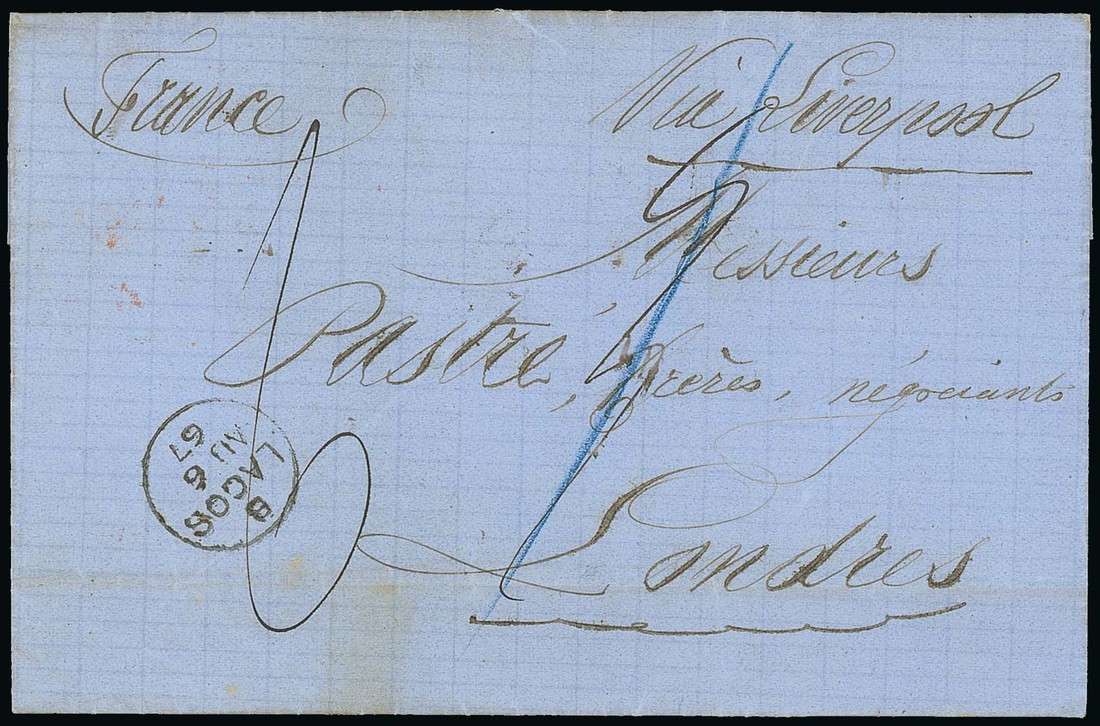 France
Via Liverpool
Messieurs
Pastré, Frères, négociants
Londres
LAGOS
B
AU 6
67
6